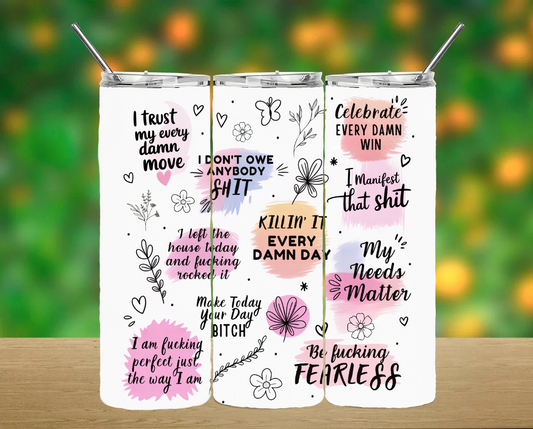 I trust
my every
damn
move
I DON'T OWE
ANYBODY
SHIT
Celebrate
EVERY DAMN
WIN
I Manifest
that shit
I left the
house today
and fucking
rocked it
KILLIN' IT
EVERY
DAMN DAY
My
Needs
Matter
Make Today
Your Day
BITCH
I am fucking
perfect just
the way I am
Be fucking
FEARLESS